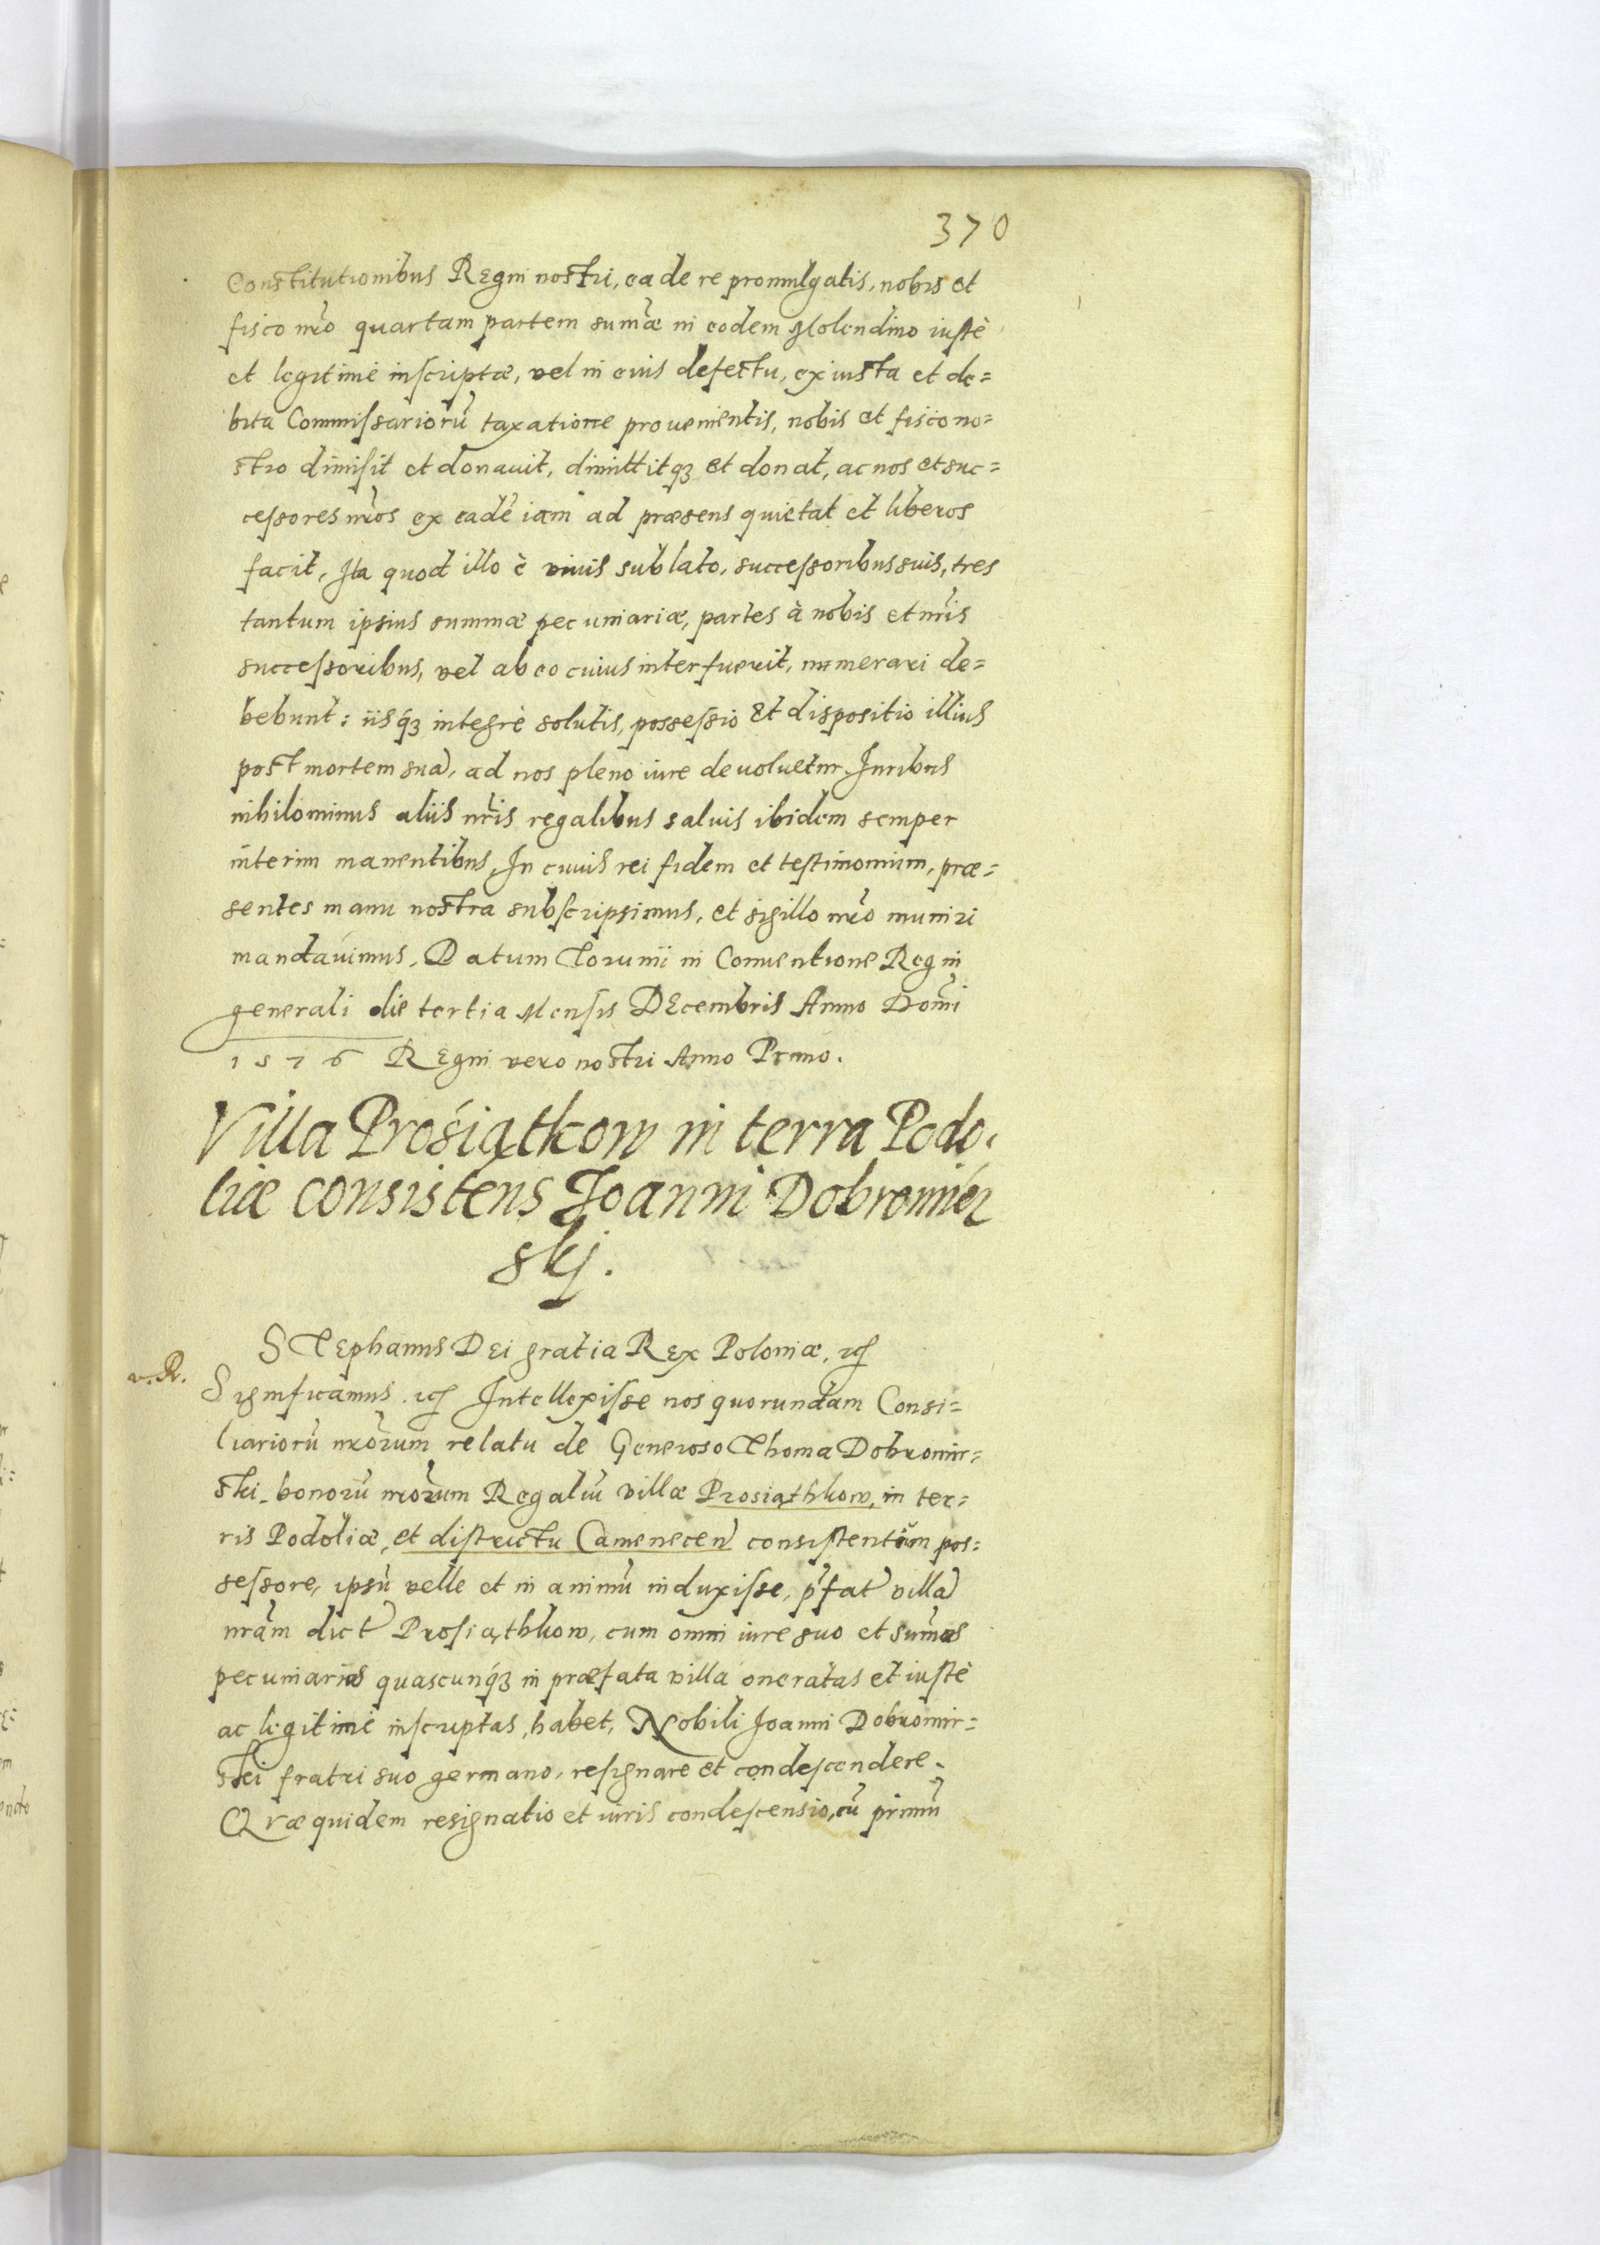 370
Constitutionibus Regni nostri, ea de re promulgatis, nobis et
fisco nr̃o quartam partem sum̃æ in eodem Molendino iustè
et legitimè inscriptæ, vel in eius defectu, ex iusta et de=
bita Commissariorũ taxatione prouenientis, nobis et fisco no=
stro dimisit et donauit, dimittitqꝫ et donat, ac nos et suc=
cessores nr̃os ex eadẽ iam ad præsens quietat et liberos
facit, Ita quod illo è viuis sublato, successoribus suis, tres
tantum ipsius summæ pecuniariæ, partes à nobis et nr̃is
successoribus, vel ab eo cuius interfuerit, numerari de=
bebunt: iisq́ꝫ integrè solutis, possessio et dispositio illius
post mortem suã, ad nos pleno iure deuoluetur. Iuribus
nihilominus aliis nr̃is regalibus saluis ibidem semper
interim manentibus, In cuius rei fidem et testimonium, præ=
sentes manu nostra subscripsimus, et sigillo nr̃o muniri
mandauimus, Datum Torunii in Conuentione Regni
generali die tertia Mensis Decembris Anno Domĩ
1576 Regni vero nostri Anno Primo.
Villa Prosiątkow in terra Podo.
liæ consistens Joanni Dobromier
skj.
Stephanus Dei gratia Rex Poloniæ, ꝛc̃
v. R.
Significamus. ꝛc̃ Intellexisse nos quorundam Consi=
liariorũ nr̃orum relatu de Generoso Thoma Dobromir=
ski bonorũ nr̃orum Regaliũ villæ Prosiąthkow, in ter=
ris Podoliæ, et districtu Camenecen̄ consistentiũm pos=
sessore, ipsũ velle et in animũ induxisse, p̃fat villã
nr̃am dict Prosiąthkow, cum omni iure suo et sum̃as
pecuniarias quascunq́ꝫ in præfata villa oneratas et iustè
ac legitimè inscriptas, habet, Nobili Joanni Dobromir=
ski fratri suo germano, resignare et condescendere.
Quæ quidem resignatio et iuris condescensio, cũ primũ